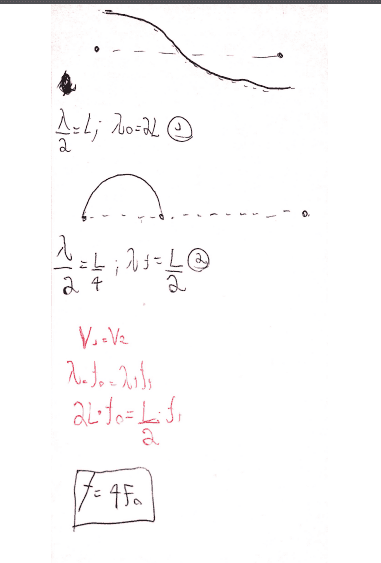 λ/2 = L; λ₀ = 2L ①
λ/2 = L/4; λf = L/2 ②
V₁ = V₂
λ₀f₀ = λ₁f₁
2L·f₀ = L/2·f₁
f = 4F₀